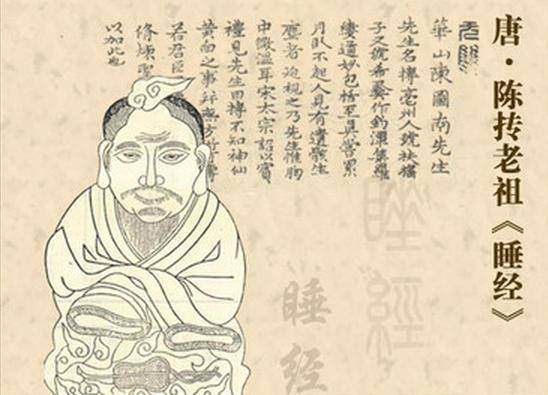 唐·陈抟老祖《睡经》
華山陳圖南先生
先生名摶亳州人號扶搖
子又號希夷作釣潭集羅
縷道妙包括至真嘗累
月臥不起人見有遺骸生
塵者迫視之乃先生惟胸
中微溫耳宋太宗詔以賓
禮見先生曰摶不知神仙
黄白之事
若君臣
修煉
以加此也
睡經
睡经